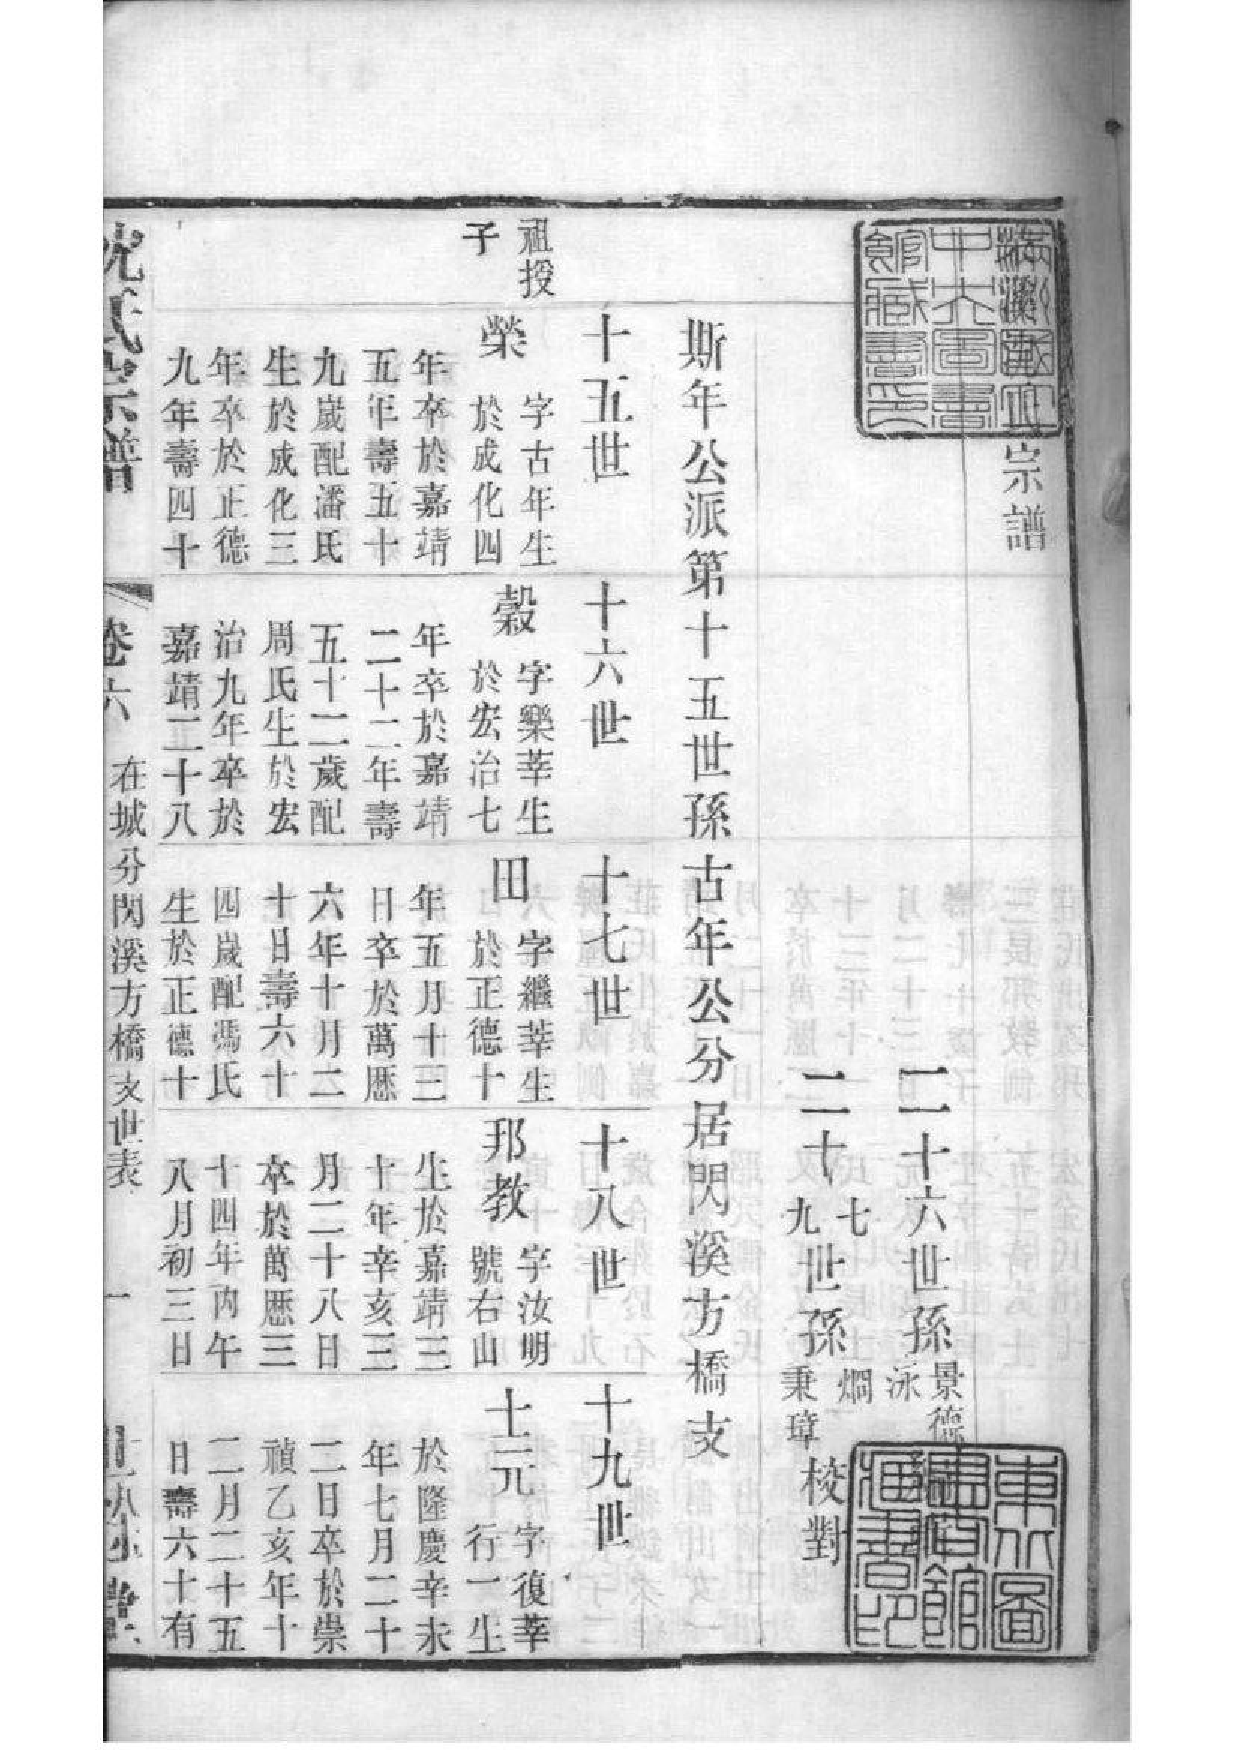 宗譜
二十六世孫 景德 泳
二十七九世孫 爓 秉璋 校對
斯年公派第十五世孫古年公分居閃溪方橋支
十五世
十六世
十七世
十八世
十九世
祖授
子
榮
字古年生
於成化四
年卒於嘉靖
五年壽五十
九歲配潘氏
生於成化三
年卒於正德
九年壽四十
穀
字樂莘生
於宏治七
年卒於嘉靖
二十二年壽
五十二歲配
周氏生於宏
治九年卒於
嘉靖二十八
田
字繼莘生
於正德十
年五月十三
日卒於萬厯
六年十月二
十日壽六十
四歲配馮氏
生於正德十
邦教
字汝明
號右山
生於嘉靖三
十年辛亥三
月二十八日
卒於萬厯三
十四年丙午
八月初三日
士元
字復莘
行一生
於隆慶辛未
年七月二十
二日卒於崇
禎乙亥年十
二月二十五
日壽六十有
沈氏宗譜
卷六
在城分閃溪方橋支世表
一